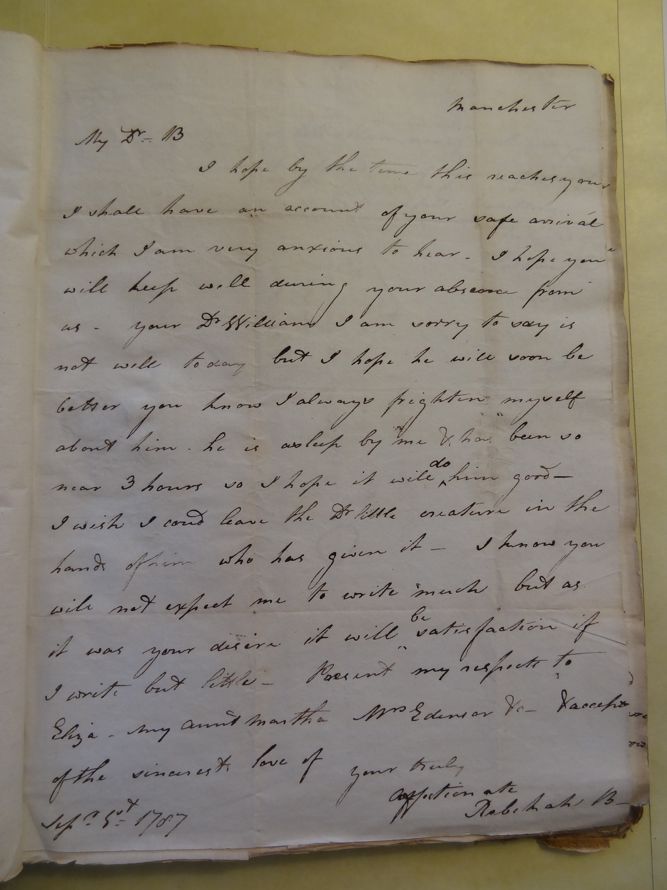 Manchester
My Dr. B
I hope by the time this reaches you
I shall have an account of your safe arrival
which I am very anxious to hear - I hope you
will keep well during your absence from
us - your Dr William I am sorry to say is
not well today but I hope he will soon be
better you know I always frighten myself
about him - he is asleep by me & has been so
near 3 hours so I hope it will do him good -
I wish I coud leave the Dr little creature in the
hands of him who has given it - I know you
will not expect me to write much but as
it was your desire it will be satisfaction if
I write but little - Present my respects to
Eliza - my aunt Martha Mrs Edensor &c - & accept
of the sincerest love of your truly
affectionate
Rebekah B -
Sepr. 5t 1787